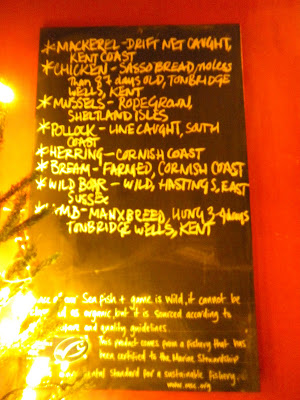 *MACKEREL-DRIFT NET CAUGHT,
KENT COAST
*CHICKEN-SASSO BREAD, no less
than 87 days OLD, TONBRIDGE
WELLS, KENT
*MUSSELS - ROPEGROWN,
SHELTLAND ISLES
*POLLOCK - LINE CAUGHT, SOUTH
COAST
*HERRING-CORNISH COAST
*BREAM-FARMED, CORNISH COAST
*WILD BOAR - WILD, HASTINGS, EAST
SUSSEX
-MANX BREED, HUNG 3-4days
TONBRIDGE WELLS, KENT
of our Sea fish + game is Wild, it cannot be
as organic, but it is sourced according to
and quality guidelines.
This product comes from a fishery that has
been certified to the Marine Stewardship
standard for a sustainable fishery.
www.msc.org